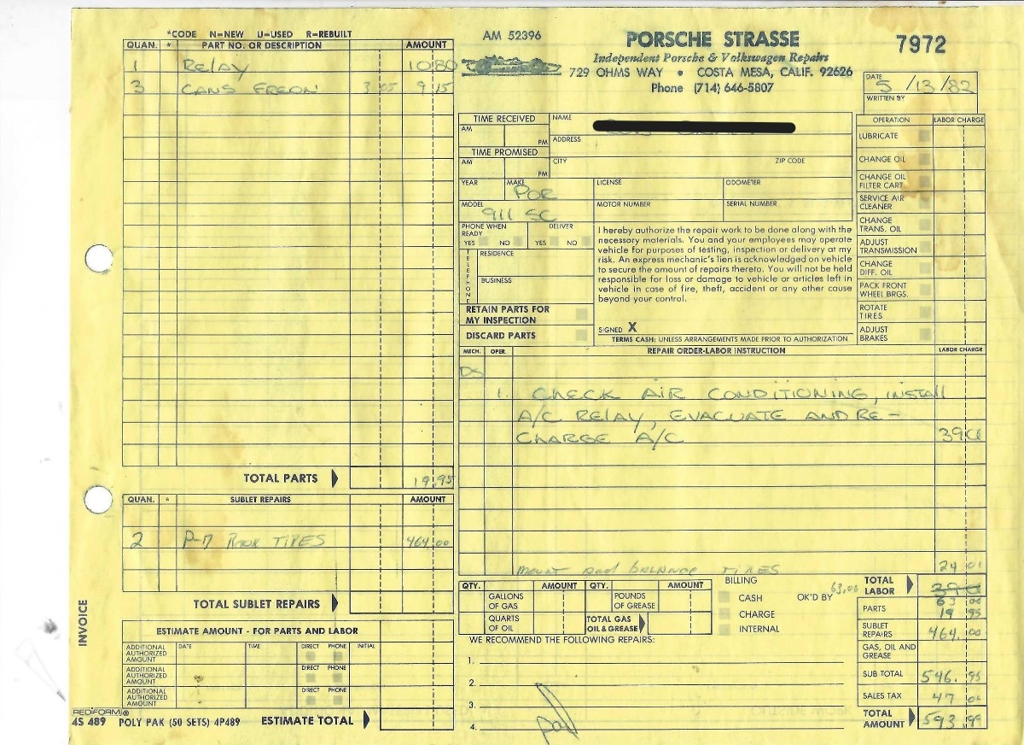 *CODE N=NEW U=USED R=REBUILT
QUAN. * PART NO. OR DESCRIPTION AMOUNT
1 RELAY 10 80
3 CANS FREON 3.05 9 15
TOTAL PARTS 19.95
QUAN. * SUBLET REPAIRS AMOUNT
2 P-7 TIRES 464.00
TOTAL SUBLET REPAIRS
INVOICE
ESTIMATE AMOUNT - FOR PARTS AND LABOR
ADDITIONAL AUTHORIZED AMOUNT DATE TIME DIRECT PHONE INITIAL
ADDITIONAL AUTHORIZED AMOUNT DIRECT PHONE
ADDITIONAL AUTHORIZED AMOUNT DIRECT PHONE
REDIFORM®
4S 489 POLY PAK (50 SETS) 4P489 ESTIMATE TOTAL
AM 52396
PORSCHE STRASSE
Independent Porsche & Volkswagen Repairs
729 OHMS WAY • COSTA MESA, CALIF. 92626
Phone (714) 646-5807
7972
DATE 5/13/82
WRITTEN BY
TIME RECEIVED
AM PM
TIME PROMISED
AM PM
NAME
ADDRESS
CITY ZIP CODE
YEAR MAKE POR LICENSE ODOMETER
MODEL 911 SC MOTOR NUMBER SERIAL NUMBER
PHONE WHEN READY DELIVER
YES NO YES NO
TELEPHONE
RESIDENCE
BUSINESS
RETAIN PARTS FOR
MY INSPECTION
DISCARD PARTS
I hereby authorize the repair work to be done along with the
necessary materials. You and your employees may operate
vehicle for purposes of testing, inspection or delivery at my
risk. An express mechanic's lien is acknowledged on vehicle
to secure the amount of repairs thereto. You will not be held
responsible for loss or damage to vehicle or articles left in
vehicle in case of fire, theft, accident or any other cause
beyond your control.
SIGNED X
TERMS CASH: UNLESS ARRANGEMENTS MADE PRIOR TO AUTHORIZATION
OPERATION LABOR CHARGE
LUBRICATE
CHANGE OIL
CHANGE OIL
FILTER CART.
SERVICE AIR
CLEANER
CHANGE
TRANS. OIL
ADJUST
TRANSMISSION
CHANGE
DIFF. OIL
PACK FRONT
WHEEL BRGS.
ROTATE
TIRES
ADJUST
BRAKES
MECH. OPER. REPAIR ORDER-LABOR INSTRUCTION LABOR CHARGE
DS
1. CHECK AIR CONDITIONING, INSTALL
A/C RELAY, EVACUATE AND RE-
CHARGE A/C
MOUNT and BALANCE TIRES
QTY. AMOUNT QTY. AMOUNT
GALLONS OF GAS POUNDS OF GREASE
QUARTS OF OIL TOTAL GAS OIL & GREASE
BILLING
CASH OK'D BY
CHARGE
INTERNAL
63.00
WE RECOMMEND THE FOLLOWING REPAIRS:
1.
2.
3.
4.
TOTAL LABOR 63 00
PARTS 19 95
SUBLET REPAIRS 464.00
GAS, OIL AND GREASE
SUB TOTAL 546.95
SALES TAX 47 04
TOTAL AMOUNT 593.99